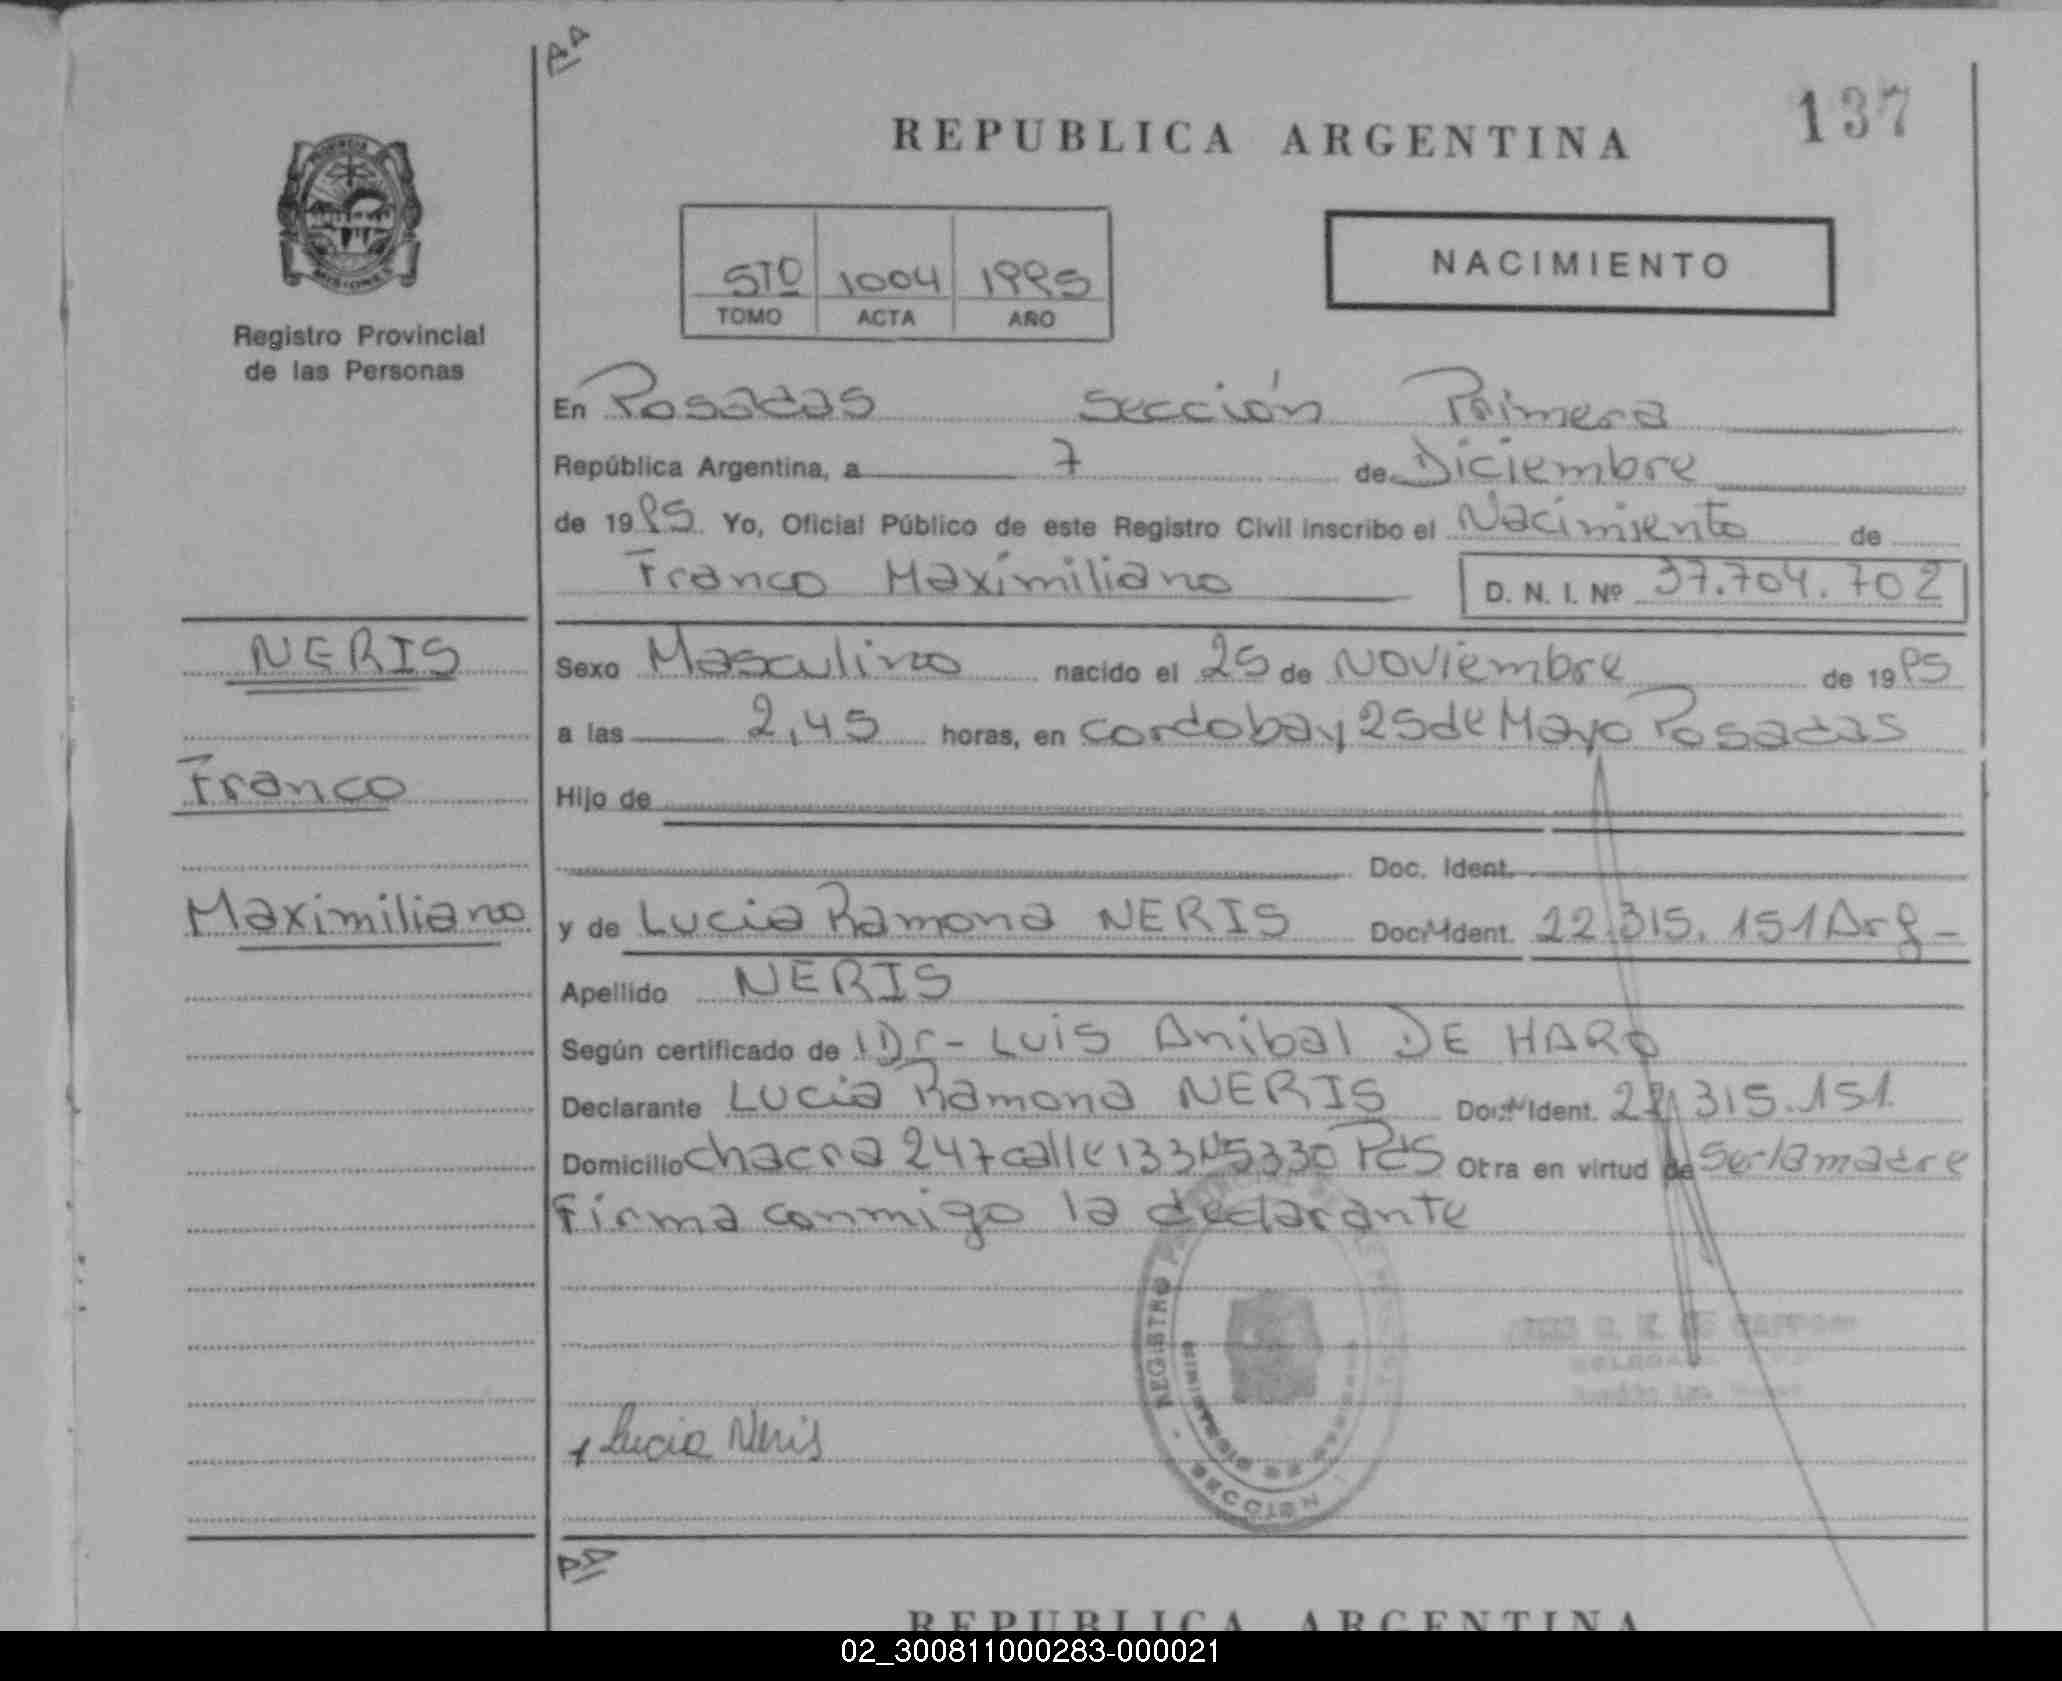 AA
REPUBLICA ARGENTINA
137
PROVINCIA
MISIONES
Registro Provincial
de las Personas
5TO 1004 1995
TOMO ACTA AÑO
NACIMIENTO
En Posadas Sección Primera
República Argentina, a 7 de Diciembre
de 1995 Yo, Oficial Público de este Registro Civil inscribo el Nacimiento de
Franco Maximiliano D. N. I. Nº 37.704.702
NERIS
Franco
Maximiliano
Sexo Masculino nacido el 25 de Noviembre de 1995
a las 2,45 horas, en cordoba y 25 de Mayo Posadas
Hijo de
Doc. Ident.
y de Lucia Ramona NERIS Doc. Ident. 22.315.151 Arg-
Apellido NERIS
Según certificado de Dr- Luis Anibal DE HARO
Declarante Lucia Ramona NERIS Doc. Ident. 22.315.151
Domicilio chacra 247 calle 133 Nº 5330 PdS Otra en virtud de ser la madre
Firma conmigo la declarante
REGISTRO
MINISTERIO DE
SECCION
Lucia Neris
AA
REPUBLICA ARGENTINA
02_300811000283-000021